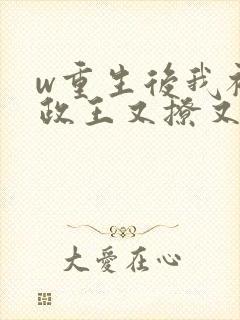 w重生後我被
政王又撩又
大愛在心